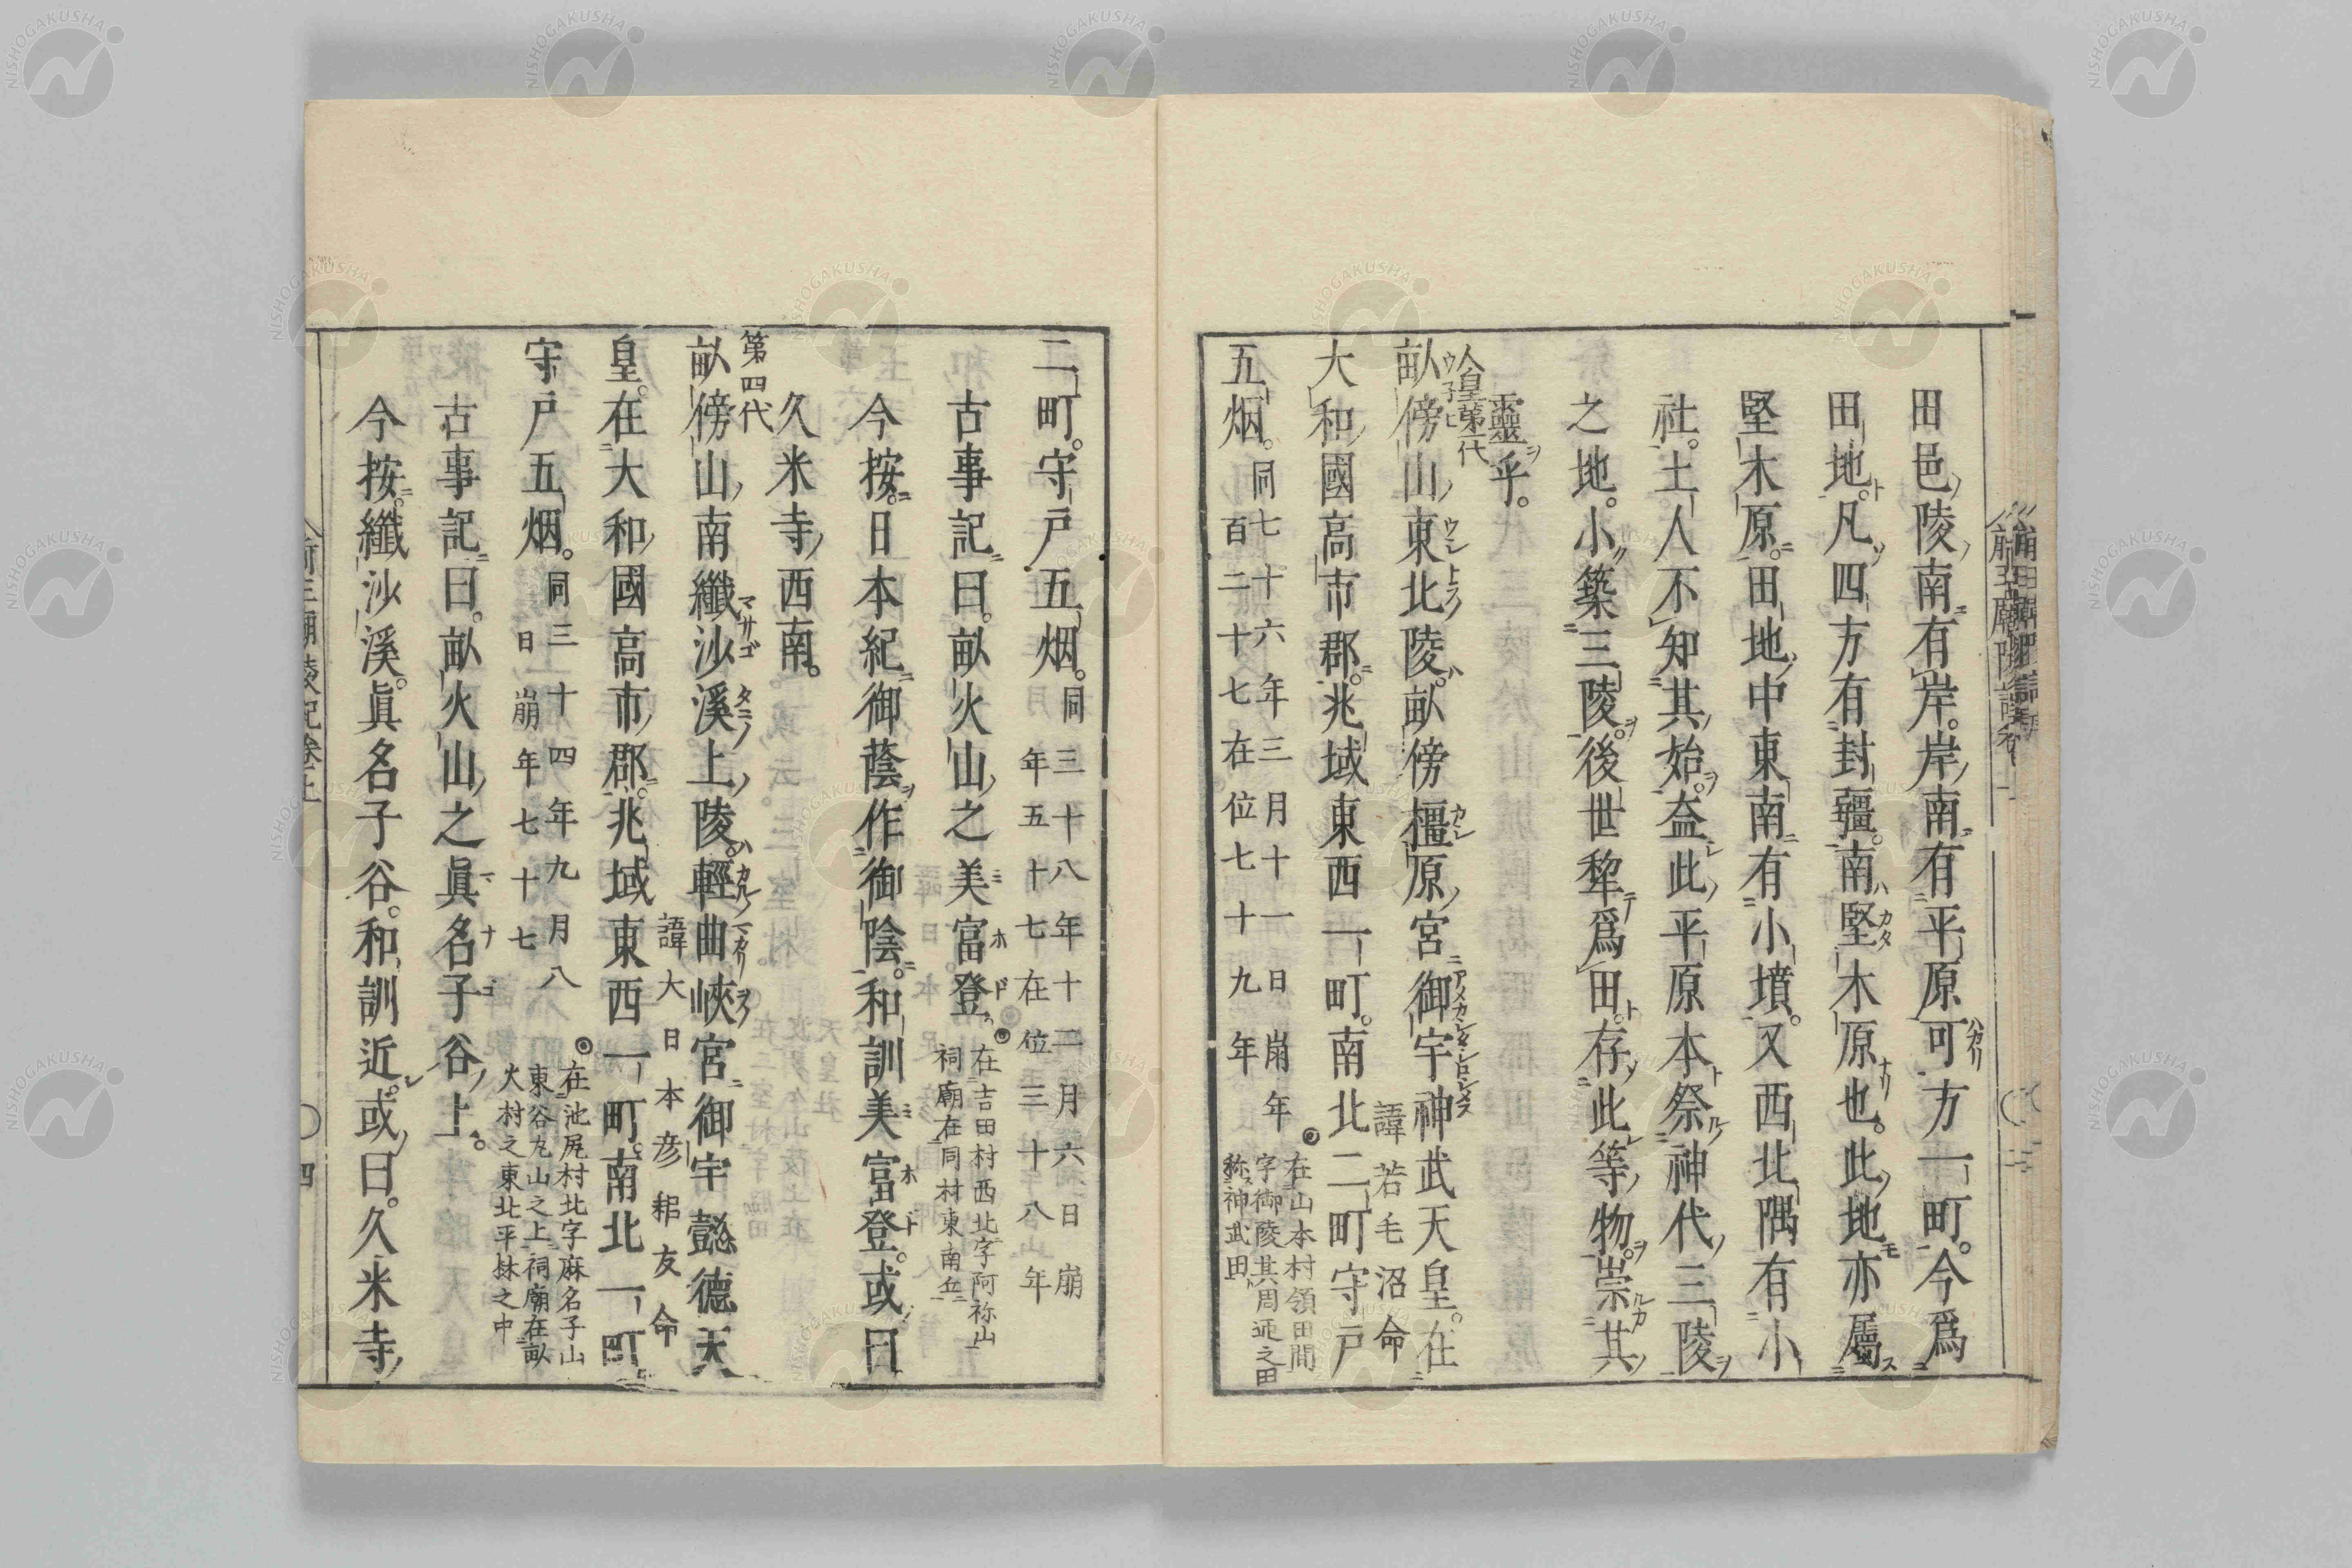 田邑陵南有岸。岸南有平原可方一町。今爲
田地。凡四方有封疆。南堅木原也。此地亦屬
堅木原。田地中東南有小墳。又西北隅有小
社。土人不知其始。益此平原本祭神代三陵
之地。小築三陵。後世犂爲田。存此等物。崇其
靈乎。
人皇第一代
畝傍山東北陵。畝傍橿原宮御宇神武天皇。在
諱若毛沼命
大和國高市郡。兆域東西一町。南北二町守戸
五烟。同七十六年三月十一日崩年
百二十七在位七十九年
◉在山本村領田間
字御陵其周𢌞之田
称神武田
二町。守戸五烟。同三十八年十二月六日崩
年五十七在位三十八年
古事記曰。畝火山之美富登。◉在吉田村西北字阿祢山
祠廟在同村東南丘
今按。日本紀御蔭作御陰。和訓美富登。或曰
久米寺西南。
第四代
畝傍山南纖沙溪上陵。輕曲峽宮御宇懿德天
諱大日本彦耜友命
皇。在大和國高市郡。兆域東西一町。南北一町
守戸五烟。同三十四年九月八
日崩年七十七
◉在池尻村北字麻名子山
東谷丸山之上祠廟在畝
火村之東北平林之中
古事記曰。畝火山之眞名子谷上。
今按。纖沙溪。眞名子谷。和訓近。或曰。久米寺
前王廟陵記卷上
四